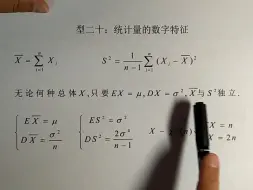 型二十：统计量的数字特征
X̄ = ∑ᵢ₌₁ⁿ Xᵢ    S² = 1/(n-1) ∑ᵢ₌₁ⁿ (Xᵢ - X̄)²
无论何种总体X,只要EX=μ,DX=σ²,X̄与S²独立.
{ EX̄ = μ    { ES² = σ²    X ~    (n)    X = n
{ DX̄ = σ²/n    { DS² = 2σ⁴/(n-1)    X = 2n